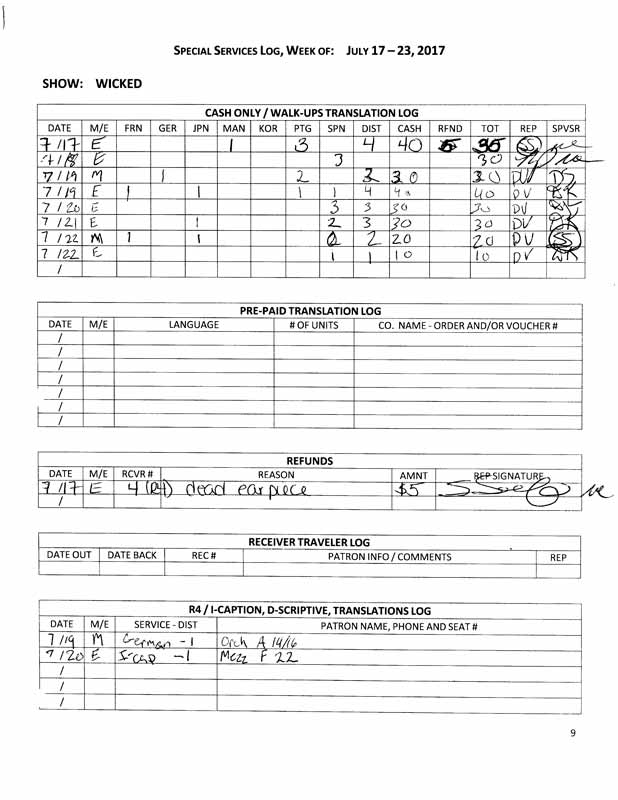 SPECIAL SERVICES LOG, WEEK OF: JULY 17 – 23, 2017
SHOW: WICKED
CASH ONLY / WALK-UPS TRANSLATION LOG
DATE M/E FRN GER JPN MAN KOR PTG SPN DIST CASH RFND TOT REP SPVSR
7/17 E 1 3 4 40 5 35 SS
7/18 E 3 30
7/19 M 1 2 3 30 30 DV
7/19 E 1 1 1 1 4 40 40 DV
7/20 E 3 3 30 30 DV
7/21 E 1 2 3 30 30 DV
7/22 M 1 1 0 2 20 20 DV SS
7/22 E 1 1 10 10 DV
/
PRE-PAID TRANSLATION LOG
DATE M/E LANGUAGE # OF UNITS CO. NAME - ORDER AND/OR VOUCHER #
/
/
/
/
/
/
/
REFUNDS
DATE M/E RCVR # REASON AMNT REP SIGNATURE
7/17 E 4 (R4) dead earpiece $5
/
RECEIVER TRAVELER LOG
DATE OUT DATE BACK REC # PATRON INFO / COMMENTS REP
R4 / I-CAPTION, D-SCRIPTIVE, TRANSLATIONS LOG
DATE M/E SERVICE - DIST PATRON NAME, PHONE AND SEAT #
7/19 M German -1 Orch A 14/16
7/20 E I-cap -1 Mezz F 22
/
/
/
9